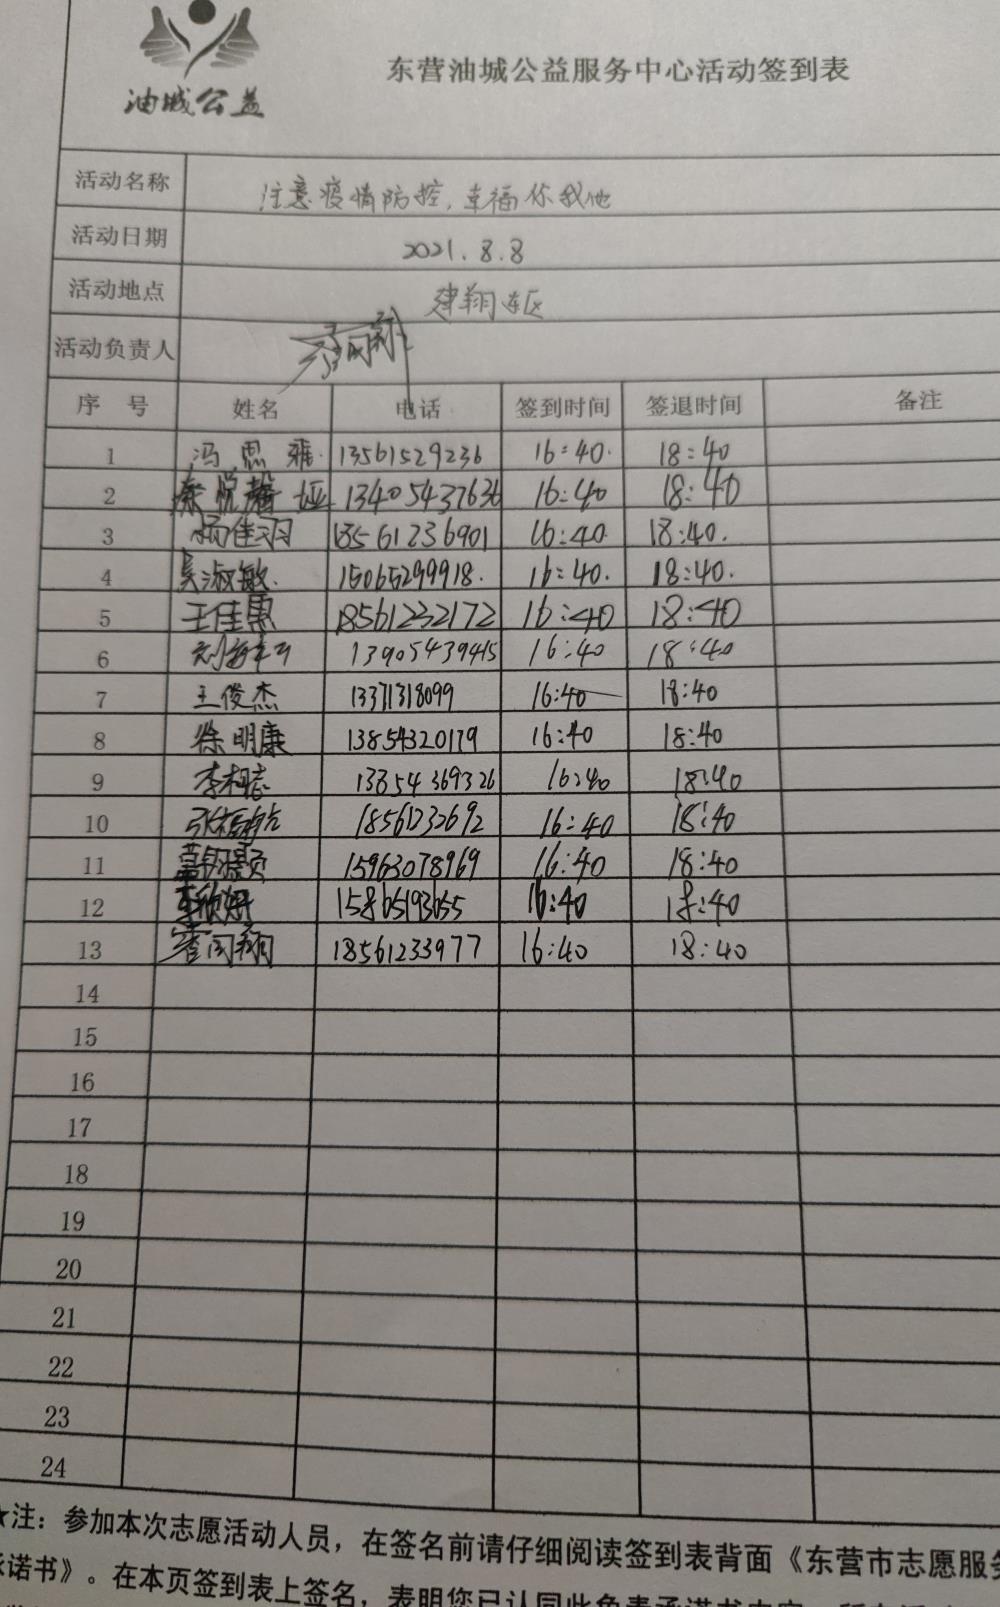 油城公益
东营油城公益服务中心活动签到表
活动名称 注意疫情防控,幸福你我他
活动日期 2021.8.8
活动地点 建翔东区
活动负责人
序号 姓名 电话 签到时间 签退时间 备注
1 冯思雅 13561529236 16:40 18:40
2 秦悦馨 13405437636 16:40 18:40
3 杨佳羽 18561236901 16:40 18:40
4 吴淑敏 15065299918 16:40 18:40
5 王佳惠 18561232172 16:40 18:40
6 13905439415 16:40 18:40
7 王俊杰 13371318099 16:40 18:40
8 徐明康 13854320179 16:40 18:40
9 李相志 13854369326 16:40 18:40
10 18561232692 16:40 18:40
11 15963078969 16:40 18:40
12 李欣妍 15865193655 16:40 18:40
13 18561233977 16:40 18:40
14
15
16
17
18
19
20
21
22
23
24
★注:参加本次志愿活动人员,在签名前请仔细阅读签到表背面《东营市志愿服务
承诺书》。在本页签到表上签名,表明您已认同此免责承诺书内容